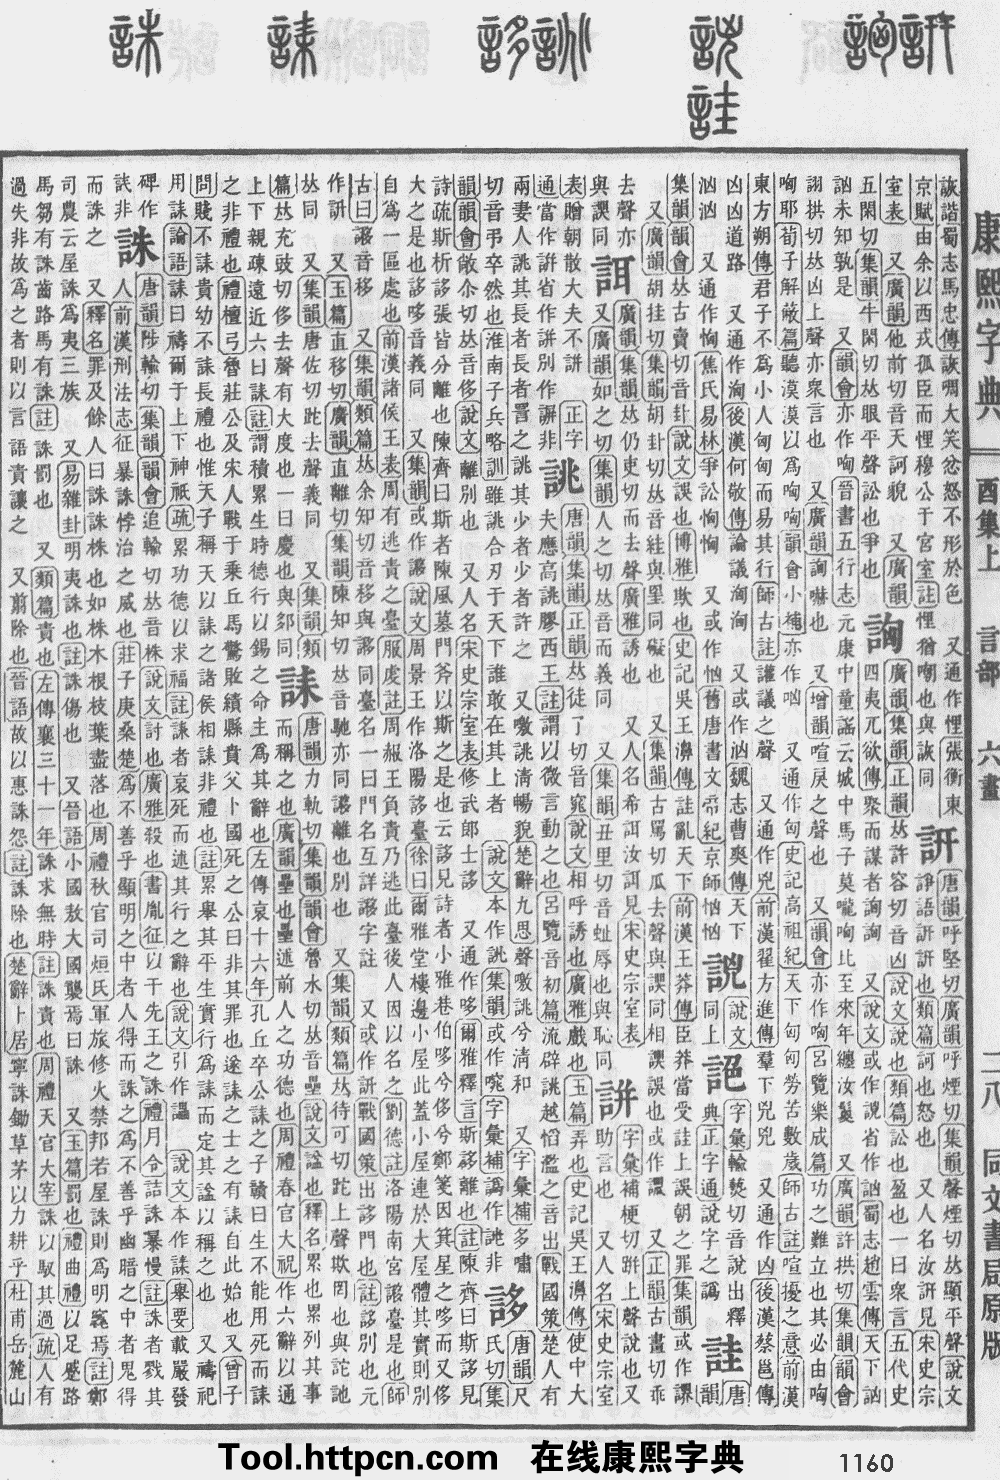 康熙字典 酉集上 言部 六畫 二八 同文書局原版
詼諧蜀志馬忠傳詼啁大笑忿怒不形於色 又通作悝張衡東
京賦由余以西戎孤臣而悝穆公于宮室註悝猶嘲也與詼同
訮
唐韻呼堅切廣韻呼煙切集韻馨煙切𠀤顯平聲說文
諍語訮訮也類篇訶也怒也 又人名汝訮見宋史宗
室表 又廣韻他前切音天訶貌 又廣韻
五閑切集韻牛閑切𠀤眼平聲訟也爭也
詾
廣韻集韻正韻𠀤許容切音凶說文說也類篇訟也盈也一曰衆言五代史
四夷兀欲傳聚而謀者詾詾 又說文或作說省作訩蜀志趙雲傳天下訩
訩未知孰是 又韻會亦作哅晉書五行志元康中童謠云城中馬子莫嚨哅比至來年纏汝鬉 又廣韻許拱切集韻韻會
詡拱切𠀤凶上聲亦衆言也 又廣韻詾嚇也 又增韻喧戾之聲也 又韻會亦作哅呂覽樂成篇功之難立也其必由哅
哅耶荀子解蔽篇聽漠漠以爲哅哅韻會小補亦作呦 又通作匈史記高祖紀天下匈匈勞苦數歲師古註喧擾之意前漢
東方朔傳君子不爲小人匈匈而易其行師古註讙議之聲 又通作兇前漢翟方進傳羣下兇兇 又通作凶後漢蔡邕傳
凶凶道路 又通作洶後漢何敞傳論議洶洶 又或作訥魏志曹爽傳天下
汹汹 又通作恟焦氏易林爭訟恟恟 又或作忷舊唐書文帝紀京師忷忷
說文
同上
字彙輸爇切音說出釋
典正字通說字之譌
詿
唐
韻
集韻韻會𠀤古賣切音卦說文誤也博雅欺也史記吳王濞傳詿亂天下前漢王莽傳臣莽當受詿上誤朝之罪集韻或作
又廣韻胡挂切集韻胡卦切𠀤音絓與罣同礙也 又集韻古罵切瓜去聲與諣同相諣誤也或作 又正韻古畫切乖
去聲亦
與諣同
誀
廣韻集韻𠀤仍吏切而去聲廣雅誘也 又人名希誀汝誀見宋史宗室表
又廣韻如之切集韻人之切𠀤音而義同 又集韻丑里切音 辱也與恥同
誁
字彙補梗切騈上聲說也又
助言也 又人名宋史宗室
表贈朝散大夫不誁 正字
通當作誁省作 別作 非
誂
唐韻集韻正韻𠀤徒了切音窕說文相呼誘也廣雅戲也玉篇弄也史記吳王濞傳使中大
夫應高誂膠西王註謂以微言動之也呂覽音初篇流辟誂越慆濫之音出戰國策楚人有
兩妻人誂其長者長者詈之誂其少者少者許之 又噭誂清暢貌楚辭九思聲噭誂兮清和 又字彙補多嘯
切音弔卒然也淮南子兵略訓雖誂合刃于天下誰敢在其上者 說文本作 集韻或作 字彙補譌作 非
誃
唐韻尺
氏切集
韻韻會敞尒切𠀤音侈說文離別也 又人名宋史宗室表修武郎士誃 又通作哆爾雅釋言斯誃離也註陳齊曰斯誃見
詩疏斯析誃張皆分離也陳齊曰斯者陳風墓門斧以斯之是也云誃見詩者小雅巷伯哆兮侈兮鄭箋因箕星之哆而又侈
大之是也誃哆音義同 又集韻或作謻說文周景王作洛陽誃臺徐曰爾雅堂樓邊小屋此葢小屋連於大屋體其實則別
自爲一區處也前漢諸侯王表周有逃責之臺服虔註周赧王負責乃逃此臺後人因以名之劉德註洛陽南宮謻臺是也師
古曰謻音移 又集韻類篇𠀤余知切音移與謻同臺名一曰門名互詳謻字註 又或作訮戰國策出誃門也註誃別也元
作訮 又玉篇直移切廣韻直離切集韻陳知切𠀤音馳亦同謻離也別也 又集韻類篇𠀤待可切跎上聲欺罔也與詑訑
𠀤同 又集韻唐佐切跎去聲義同 又集韻類
篇𠀤充豉切侈去聲有大度也一曰慶也與 同
誄
唐韻力軌切集韻韻會魯水切𠀤音壘說文諡也釋名累也累列其事
而稱之也廣韻壘也壘述前人之功德也周禮春官大祝作六辭以通
上下親疎遠近六曰誄註謂積累生時德行以錫之命主爲其辭也左傳哀十六年孔丘卒公誄之子贛曰生不能用死而誄
之非禮也禮檀弓魯莊公及宋人戰于乘丘馬驚敗績縣賁父卜國死之公曰非其罪也遂誄之士之有誄自此始也又曾子
問賤不誄貴幼不誄長禮也惟天子稱天以誄之諸侯相誄非禮也註累舉其平生實行爲誄而定其諡以稱之也 又禱祀
用誄論語誄曰禱爾于上下神祇疏累功德以求福註誄者哀死而述其行之辭也說文引作讄 說文本作誄舉要載嚴發
碑作
誄非
誅
唐韻陟輸切集韻韻會追輸切𠀤音株說文討也廣雅殺也書胤征以干先王之誅禮月令詰誅暴慢註誅者戮其
人前漢刑法志征暴誅悖治之威也莊子庚桑楚爲不善乎顯明之中者人得而誅之爲不善乎幽暗之中者鬼得
而誅之 又釋名罪及餘人曰誅誅株也如株木根枝葉盡落也周禮秋官司烜氏軍旅修火禁邦若屋誅則爲明竁焉註鄭
司農云屋誅爲夷三族 又易雜卦明夷誅也註誅傷也 又晉語小國敖大國襲焉曰誅 又玉篇罰也禮曲禮以足蹙路
馬芻有誅齒路馬有誅註誅罰也 又類篇責也左傳襄三十一年誅求無時註誅責也周禮天官大宰誅以馭其過疏人有
過失非故爲之者則以言語責讓之 又翦除也晉語故以惠誅怨註誅除也楚辭卜居寧誅鋤草茅以力耕乎杜甫岳麓山
Tool.httpcn.com 在线康熙字典 1160